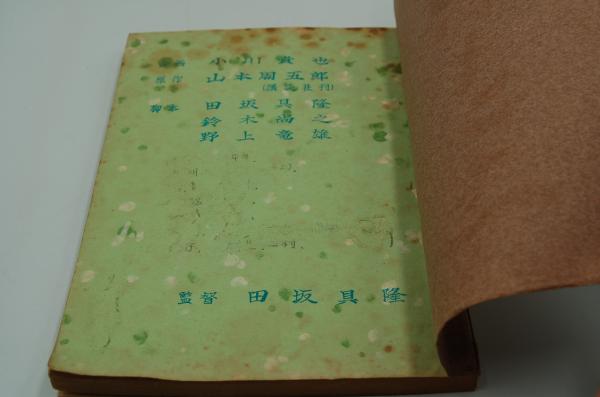 企画 小川貴也
原作 山本周五郎
(講談社刊)
脚本 田坂具隆
鈴木尚之
野上竜雄
監督 田坂具隆